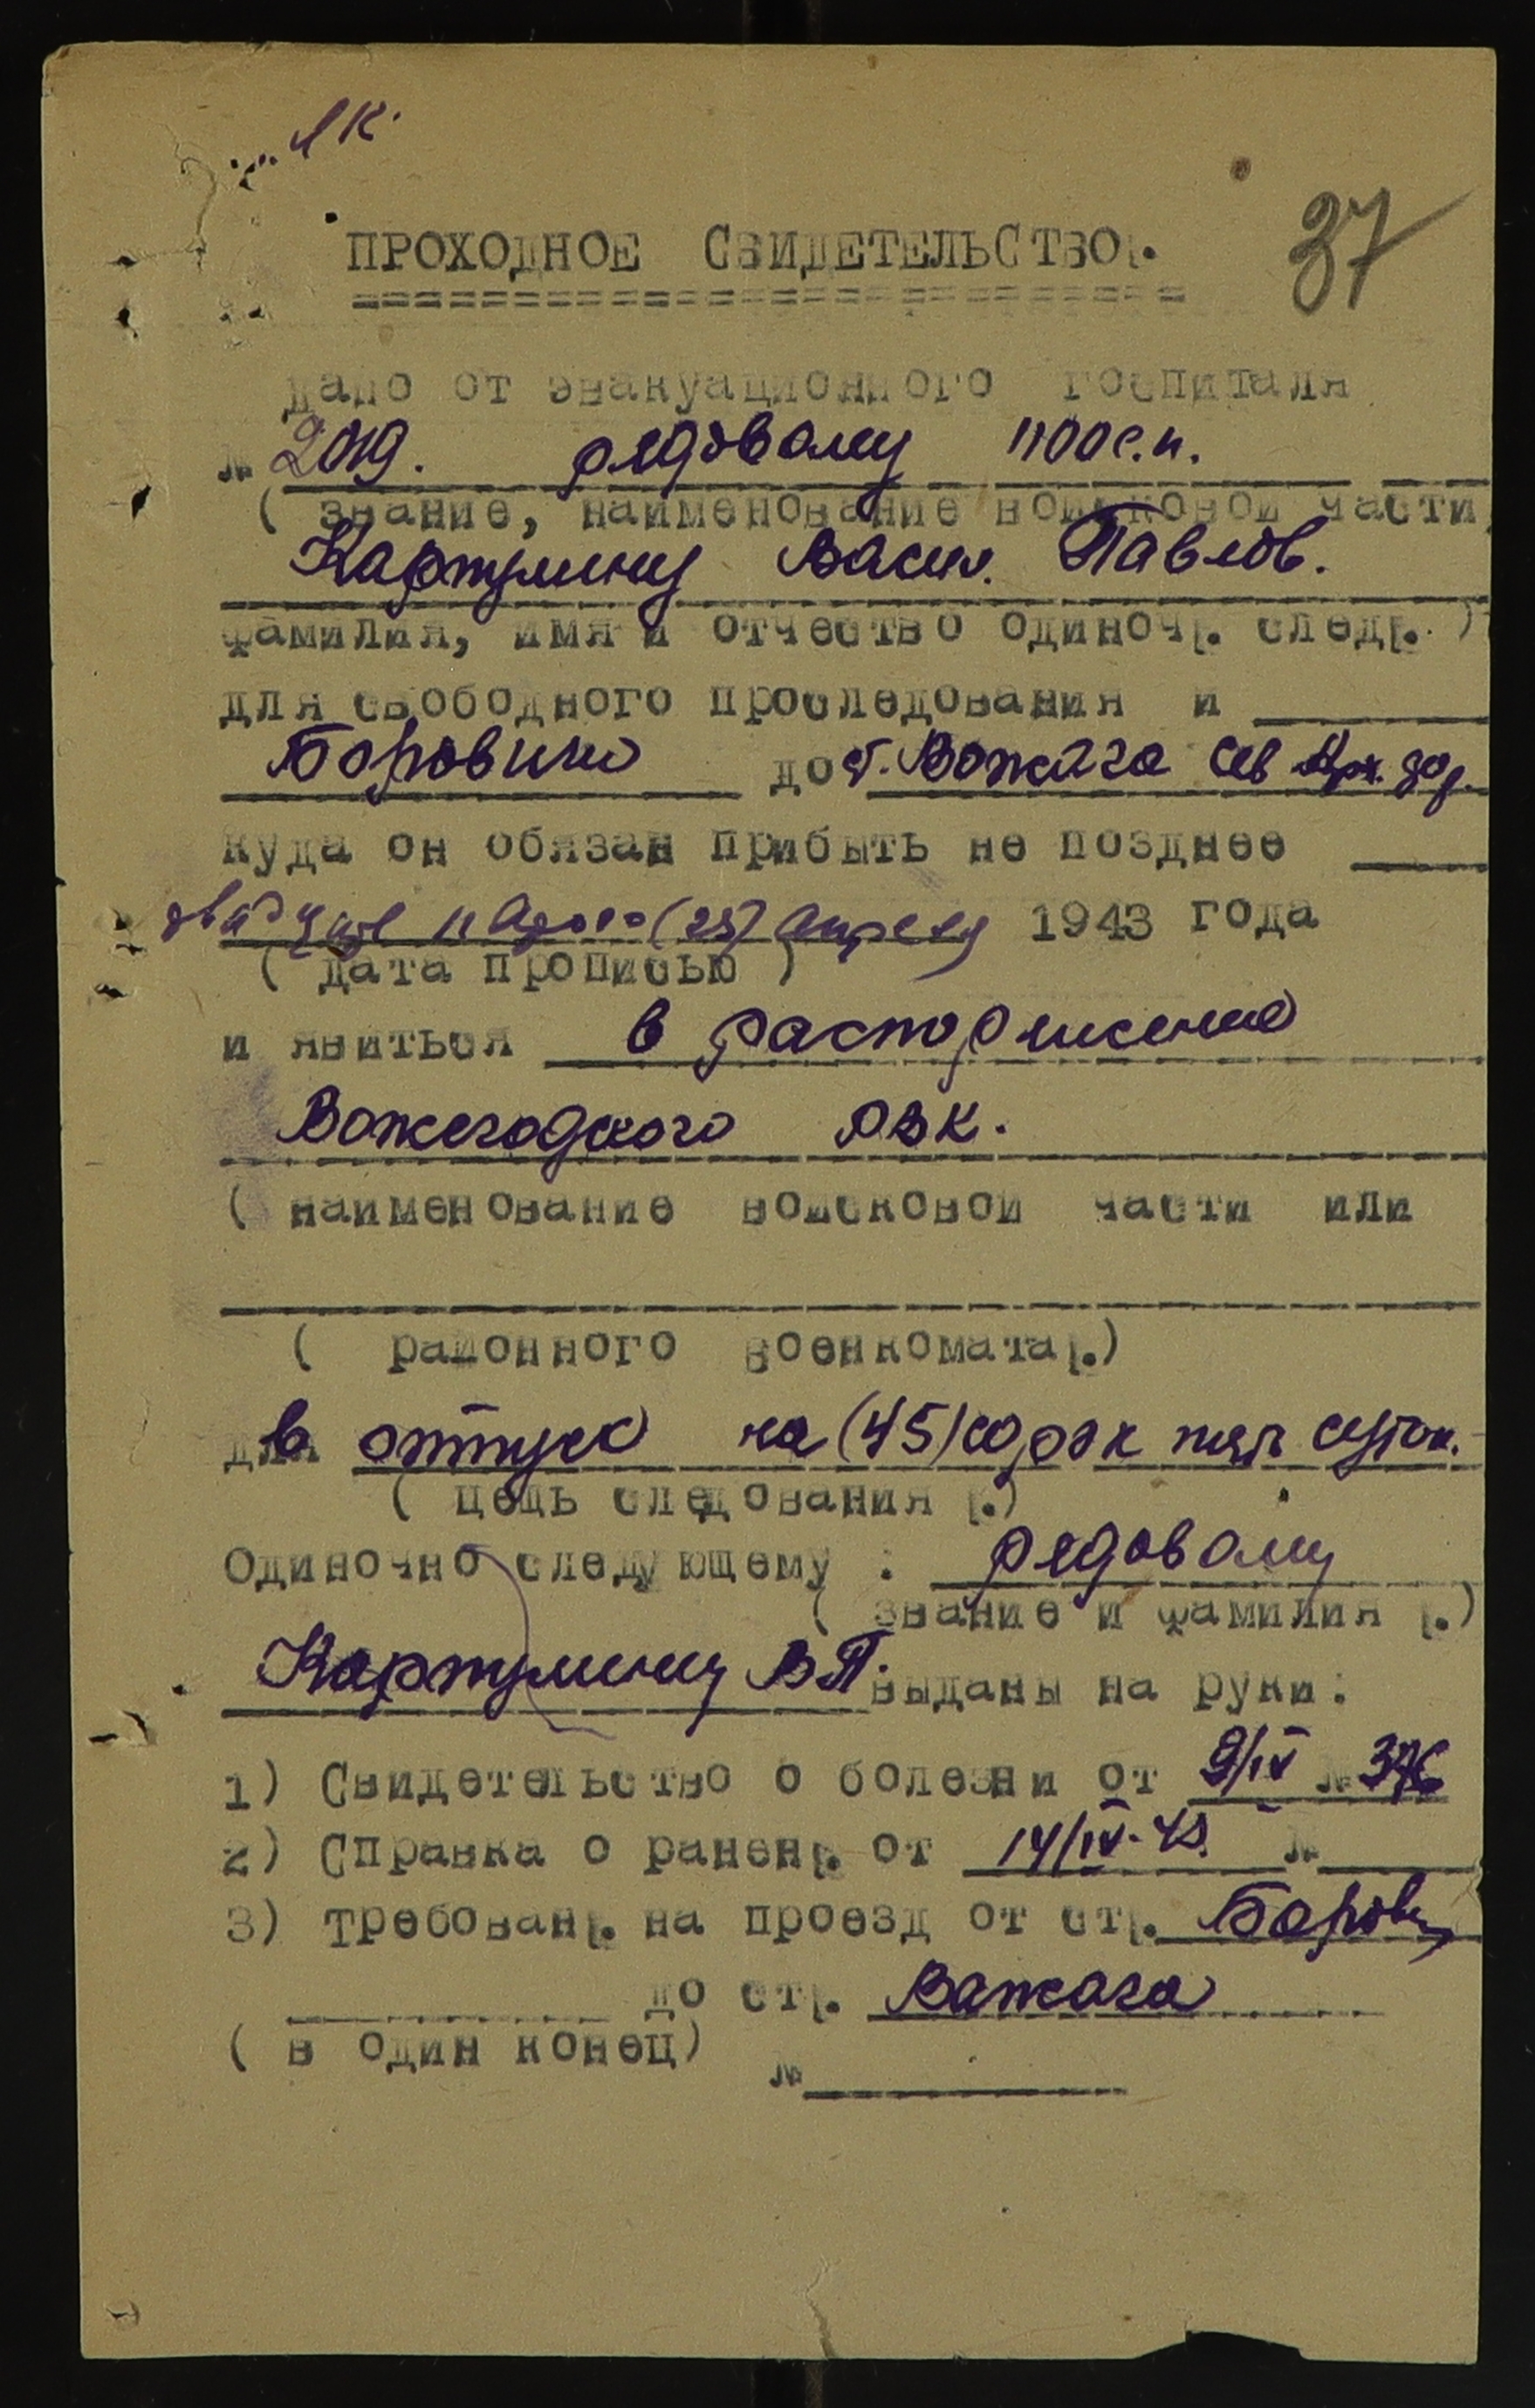 ЯК.
37
ПРОХОДНОЕ СВИДЕТЕЛЬСТВО.
дано от эвакуационного госпиталя
№ 2019. рядовому 1100 с.п.
( звание, наименование войсковой части,
Картулину Васил. Павлов.
фамилия, имя и отчество одиноч. след. )
для свободного проследования и
Боровичи до ст. Вожега Сев дор.
куда он обязан прибыть не позднее
двадцать пятого (25) апреля 1943 года
( дата прописью )
и явиться в распоряжение
Вожегодского РВК.
( наименование войсковой части или
( районного военкомата.)
для в отпуск на (45) сорок пять суток.
( цель следования .)
Одиночно следующему : рядовому
( звание и фамилия .)
Картулину В П. выданы на руки:
1) Свидетельство о болезни от 9/IV №
2) Справка о ранен. от 14/IV-43. №
3) Требован. на проезд от ст. Борович
до ст. Вожега
( в один конец)
№